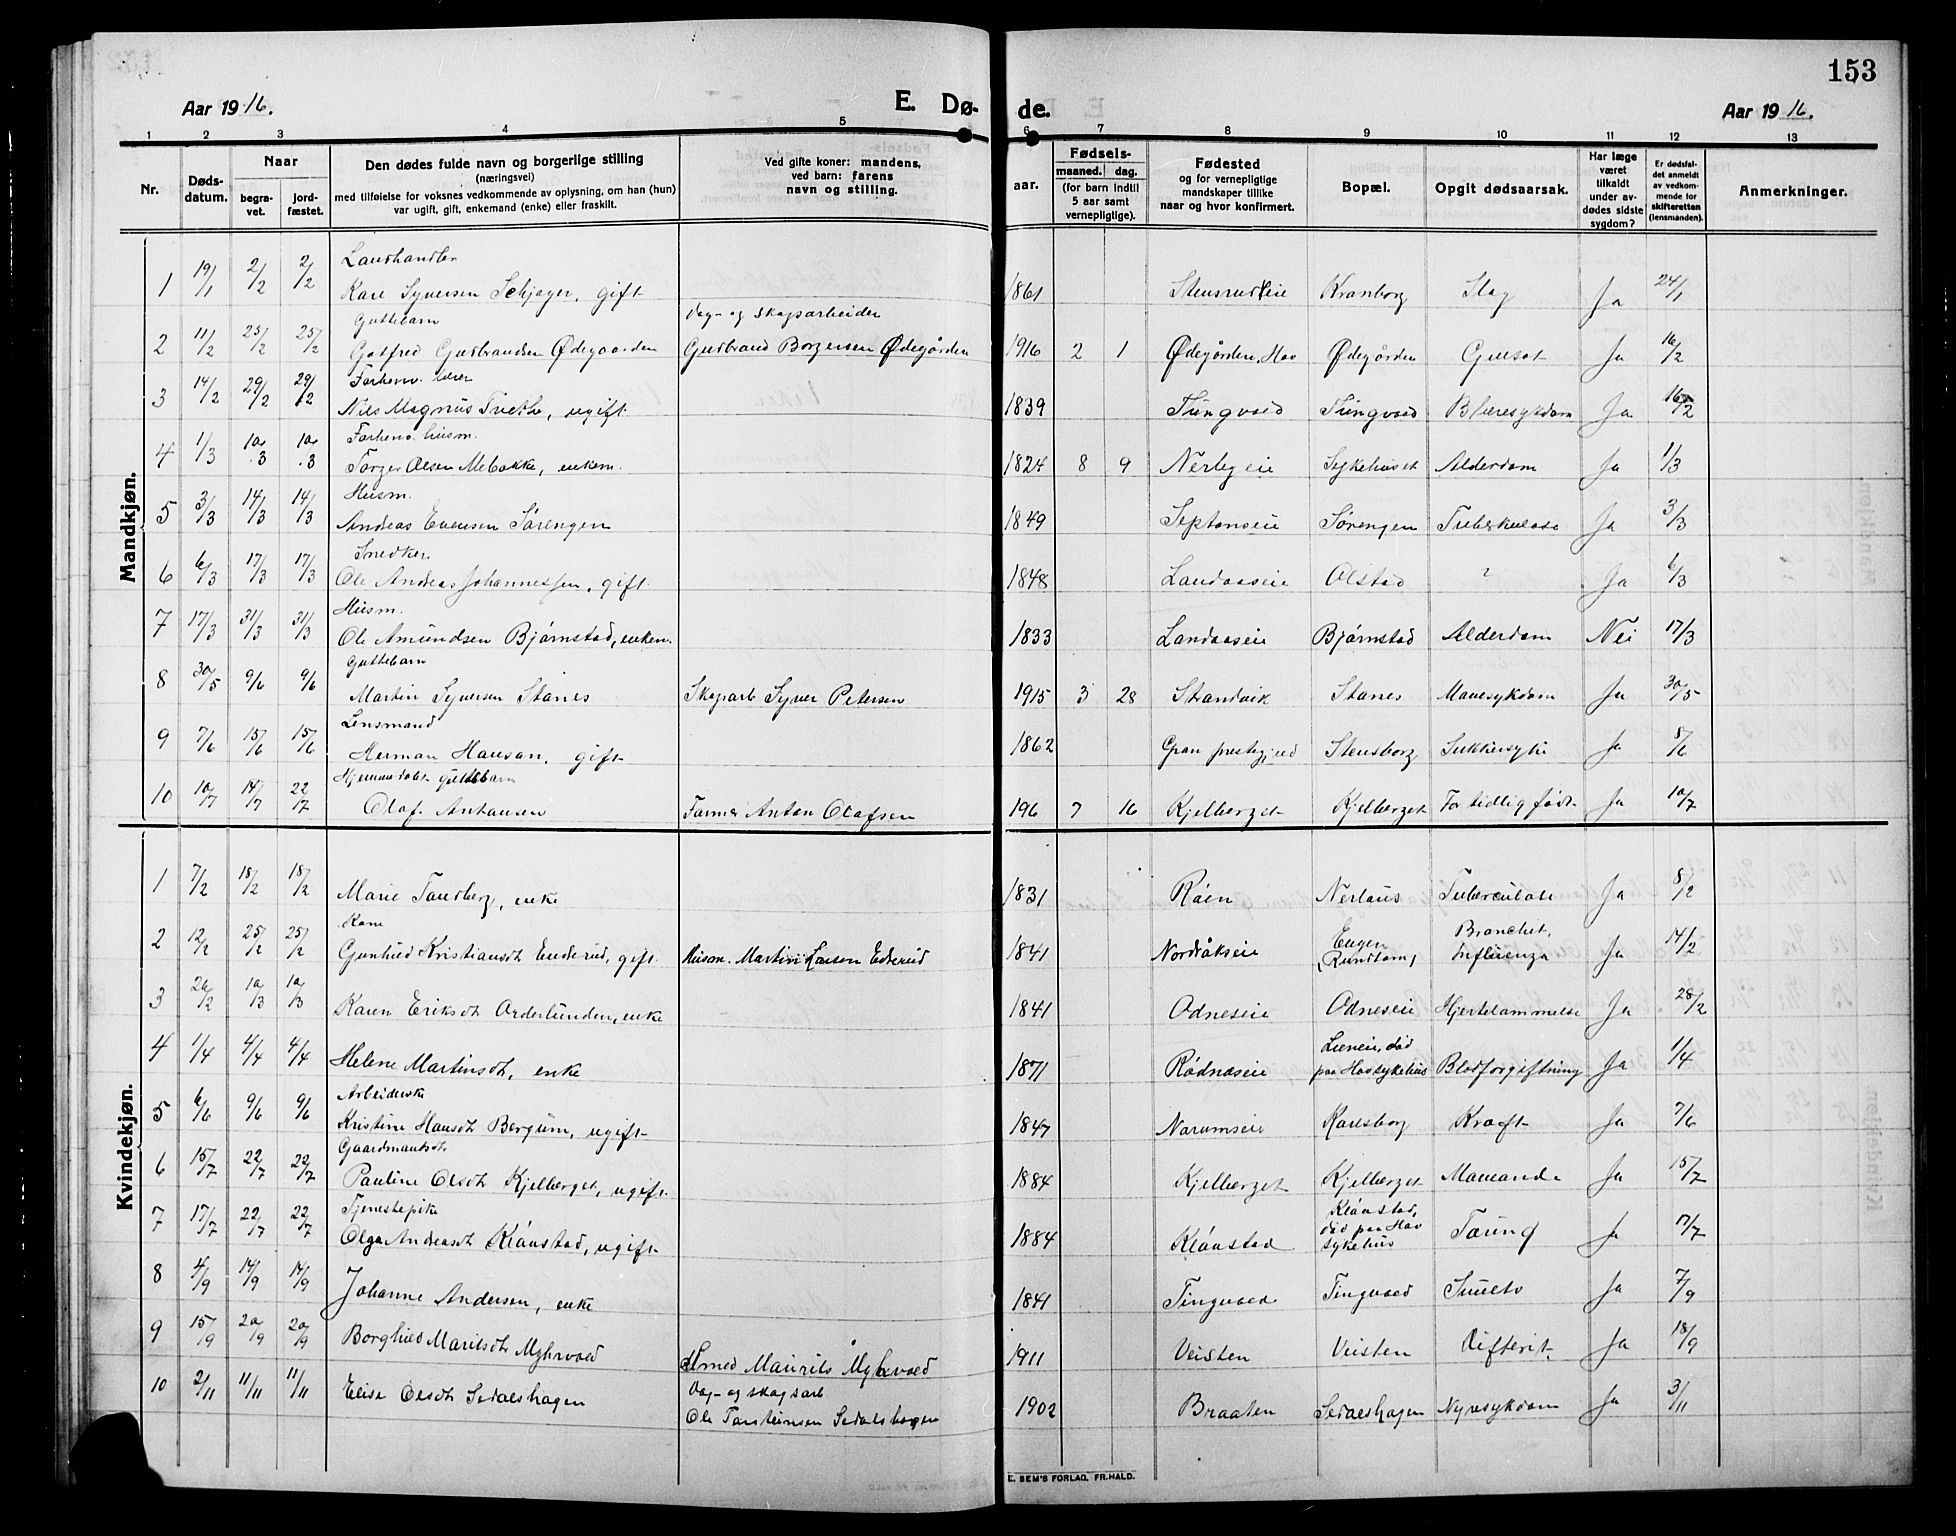 153
Aar 1916. E. Dø- de. Aar 1916.
1 2 3 4 5 6 7 8 9 10 11 12 13
Nr.
Døds-
datum.
Naar
begra-
vet.
jord-
fæstet.
Den dødes fulde navn og borgerlige stilling
(næringsvei)
med tilføielse for voksnes vedkommende av oplysning, om han (hun)
var ugift, gift, enkemand (enke) eller fraskilt.
Ved gifte koner: mandens,
ved barn: farens
navn og stilling.
aar.
Fødsels-
maaned. dag.
(for barn indtil
5 aar samt
vernepligtige).
Fødested
og for vernepligtige
mandskaper tillike
naar og hvor konfirmert.
Bopæl.
Opgit dødsaarsak.
Har læge
været
tilkaldt
under av-
dødes sidste
sygdom?
Er dødsfal-
det anmeldt
av vedkom-
mende for
skifteretten
(lensmanden).
Anmerkninger.
Mandkjøn.
Landhandler
1 19/1 2/2 2/2 Kare Syversen Schjager, gift 1861 Stensrudeie Kronborg Slag Ja 24/1
Guttebarn Dag- og skogsarbeider
2 11/2 25/2 25/2 Gotfred Gudbrandsen Ødegaarden Gudbrand Borgersen Ødegården 1916 2 1 Ødegården, Hov Ødegården Gulsot Ja 16/2
Forhenv. lærer
3 14/2 29/2 29/2 Nils Magnus Tveth, ugift 1839 Tingvold Tingvold Blæresykdom Ja 16/2
Forhenv. husm.
4 1/3 10/3 10/3 Torger Olsen Mebakke, enkem. 1824 8 9 Nerbyeie Sykehuset Alderdom Ja 1/3
Husm.
5 3/3 14/3 14/3 Andreas Evensen Sørengen 1849 Septonseie Sørengen Tuberkulose Ja 3/3
Snedker
6 6/3 17/3 17/3 Ole Andreas Johannessen, gift 1848 Landaaseie Olstad ? Ja 6/3
Husm.
7 17/3 31/3 31/3 Ole Amundsen Bjørnstad, enkem. 1833 Landaaseie Bjørnstad Alderdom Nei 17/3
Guttebarn
8 30/5 9/6 9/6 Martin Syversen Stanes Skogsarb Syver Petersen 1915 3 28 Strandvik Stanes Mavesykdom Ja 30/5
Lensmand
9 7/6 15/6 15/6 Herman Hansen, gift 1862 Gran prestegjeld Stensborg Sukkersyke Ja 8/6
Hjemmedøbt guttebarn
10 10/7 14/7 22/7 Olaf Antonsen Farmer Anton Olafsen 196 7 16 Kjelberget Kjelberget For tidlig født Ja 10/7
Kvindekjøn.
1 7/2 18/2 18/2 Marie Tandberg, enke 1831 Røen Nerlaus Tuberculose Ja 8/2
Kone
2 12/2 25/2 25/2 Gunhild Kristiansdt Enderud, gift Husm. Martin Larsen Ederud 1841 Nordråkseie Engen (Rundtom) Bronchit, Influenza Ja 14/2
3 20/2 10/3 10/3 Karen Eriksdt Orderlunden, enke 1841 Odneseie Odneseie Hjertelammelse Ja 28/2
4 1/4 4/4 4/4 Helene Martinsdt, enke 1871 Rødnæseie Lieneie, død paa Hov sykehus Blodforgiftning Ja 1/4
Arbeiderske
5 6/6 9/6 9/6 Kristine Hansdt Bergum, ugift 1847 Narumseie Karlsborg Kræft Ja 7/6
Gaardmandsdt
6 15/7 22/7 22/7 Pauline Olsdt Kjelberget, ugift 1884 Kjelberget Kjelberget Ja 15/7
Tjenestepike
7 17/7 22/7 22/7 Olga Andreasdt Kløvstad, ugift 1884 Kløvstad Kløvstad, død paa Hov sykehus Tæring Ja 17/7
8 4/9 14/9 14/9 Johanne Andersen, enke 1841 Tingvold Tingvold Ja 7/9
9 15/9 20/9 20/9 Borghild Maritsdt Myhrvold Smed Maurits Myhrvold 1911 Veisten Veisten Difterit Ja 18/9
10 2/11 11/11 11/11 Elise Olsdt Sedalshagen Dag- og skogsarb Ole Torsteinsen Sedalshagen 1902 Braaten Sedalshagen Nyresykdom Ja 3/11
E. SEM'S FORLAG, FR.HALD.